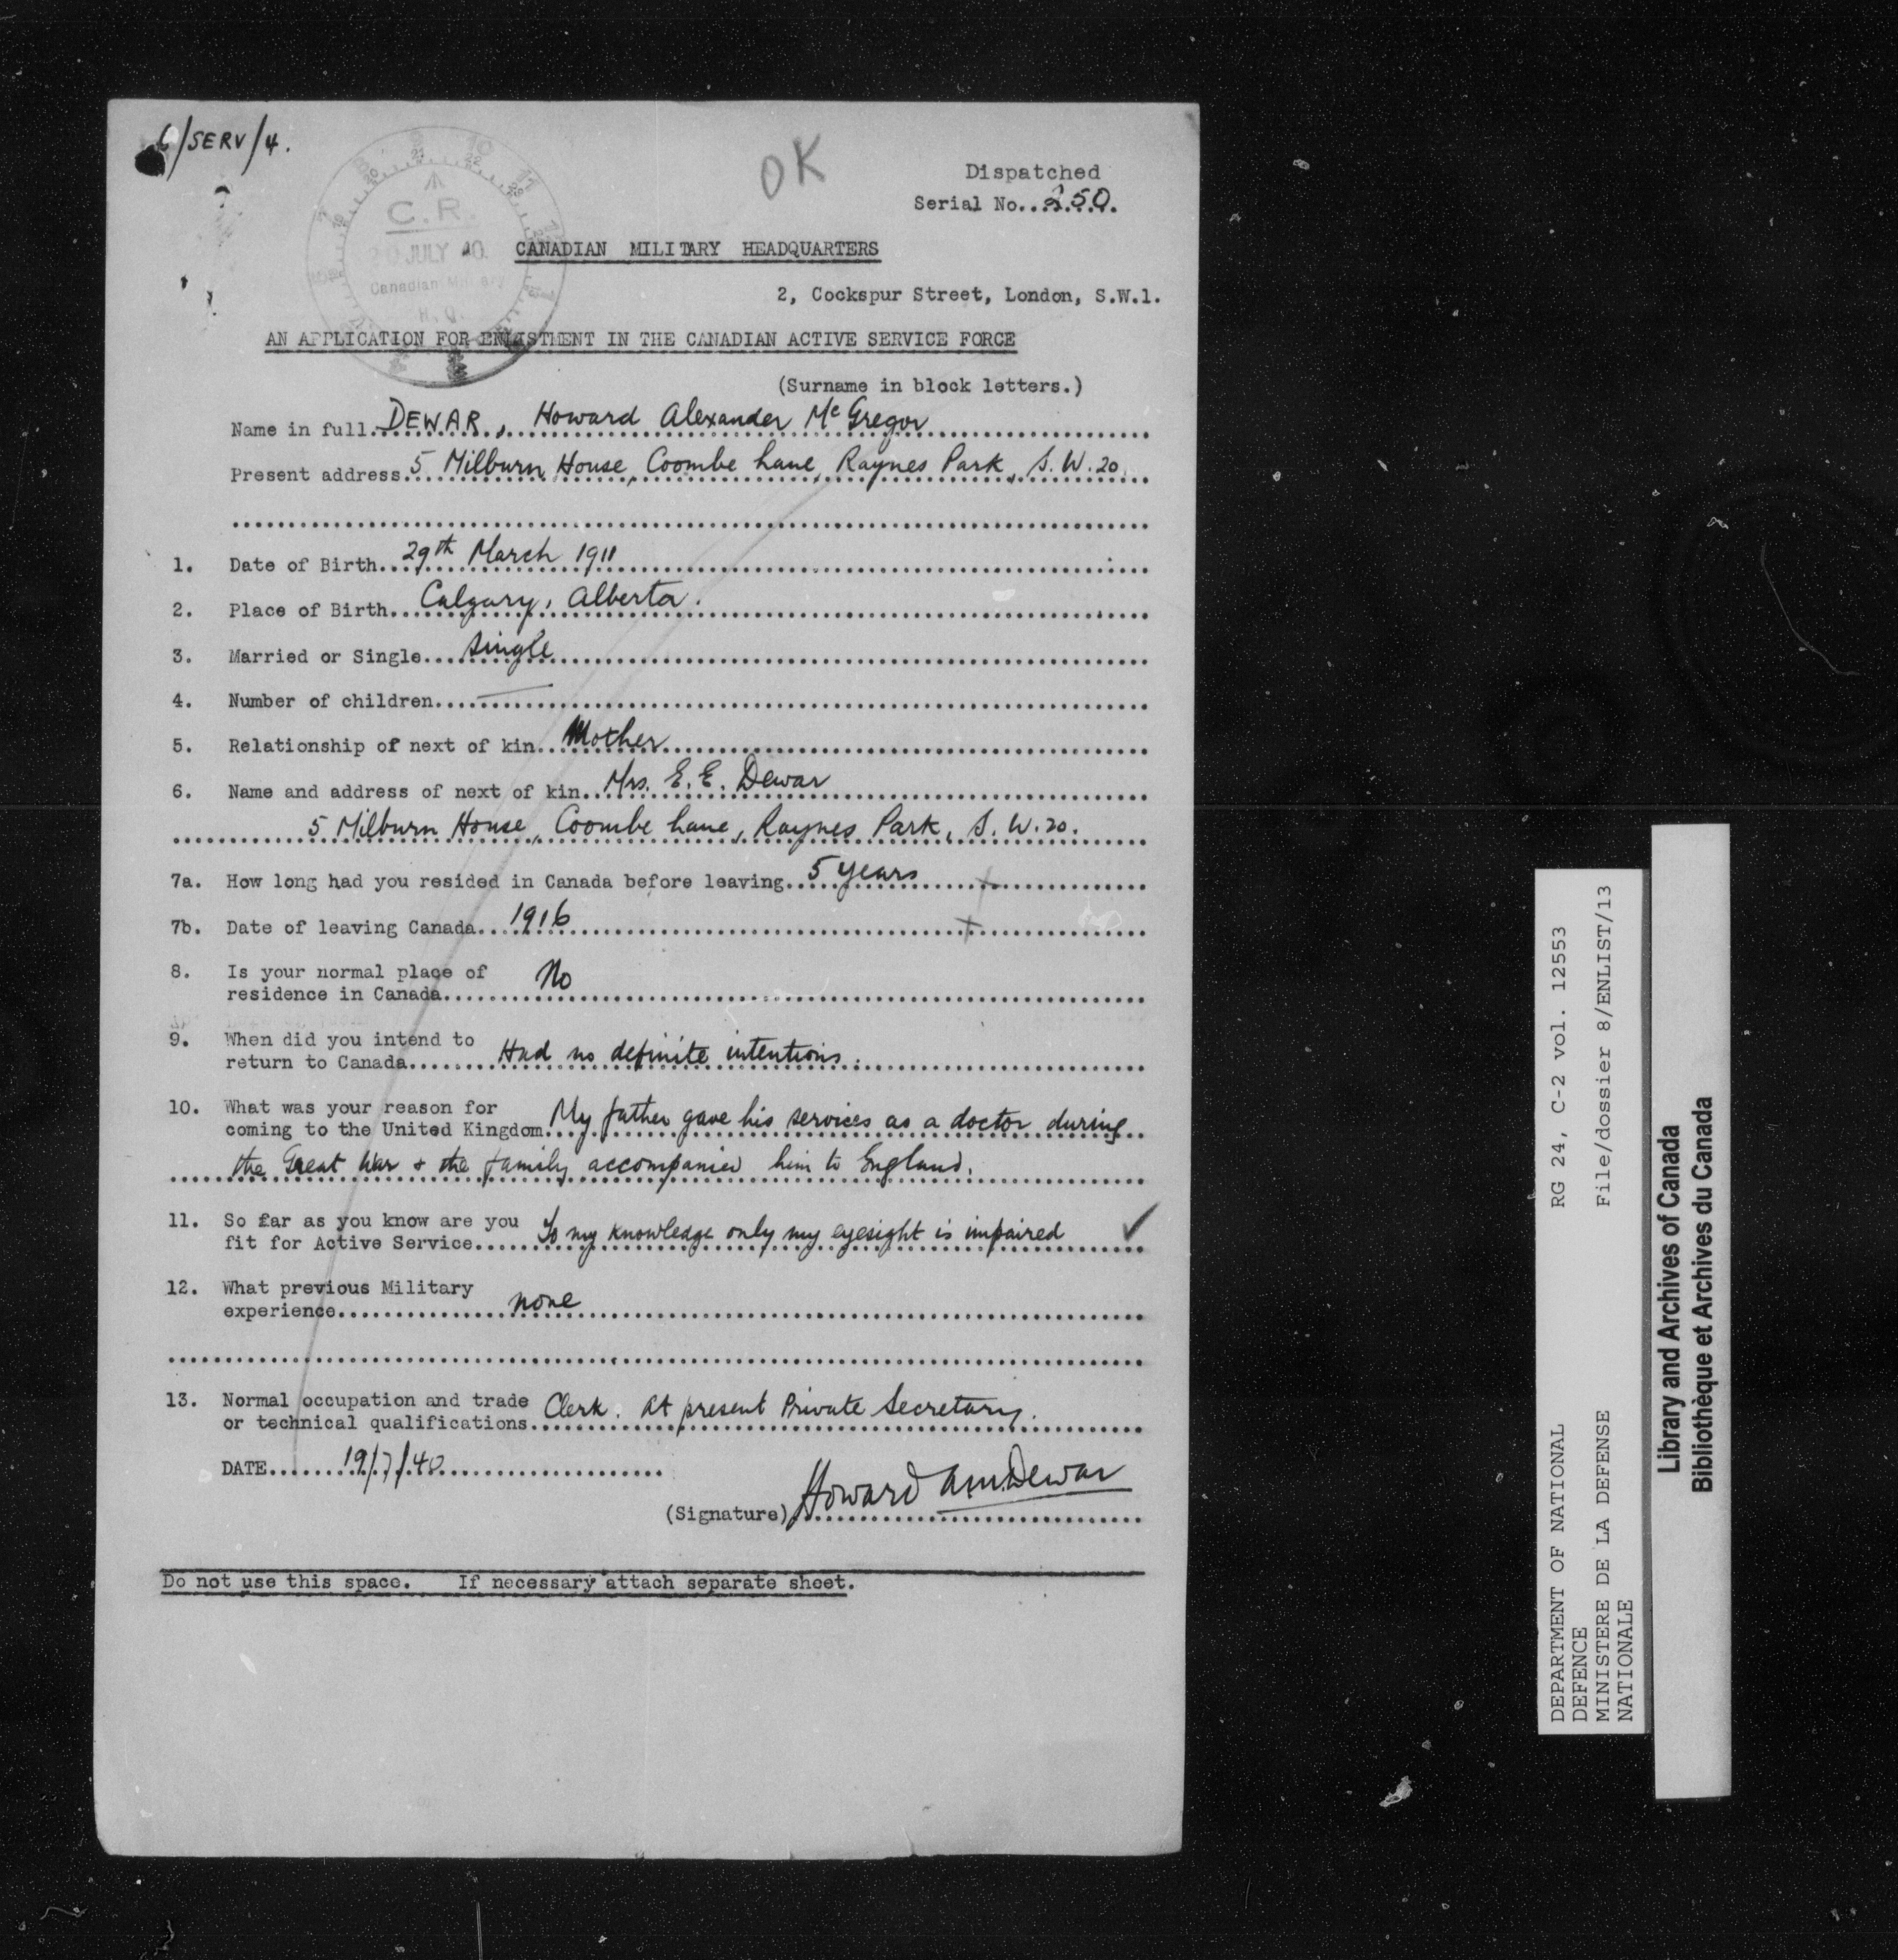 6/SERV/4.
OK
Dispatched
Serial No...250.
C.R.
20 JULY 40
Canadian Military
H.Q.
CANADIAN MILITARY HEADQUARTERS
2, Cockspur Street, London, S.W.1.
AN APPLICATION FOR ENLISTMENT IN THE CANADIAN ACTIVE SERVICE FORCE
(Surname in block letters.)
Name in full. DEWAR, Howard Alexander McGregor
Present address. 5 Milburn House, Coombe Lane, Raynes Park, S.W.20.
1. Date of Birth. 29th March 1911
2. Place of Birth. Calgary, Alberta.
3. Married or Single. Single
4. Number of children. —
5. Relationship of next of kin. Mother
6. Name and address of next of kin. Mrs. E.E. Dewar
5 Milburn House, Coombe Lane, Raynes Park, S.W.20.
7a. How long had you resided in Canada before leaving. 5 years
7b. Date of leaving Canada. 1916
8. Is your normal place of
residence in Canada. No
9. When did you intend to
return to Canada. Had no definite intentions.
10. What was your reason for
coming to the United Kingdom. My father gave his services as a doctor during
the Great War + the family accompanied him to England.
11. So far as you know are you
fit for Active Service. To my knowledge only my eyesight is impaired ✓
12. What previous Military
experience. none
13. Normal occupation and trade
or technical qualifications. Clerk. At present Private Secretary.
DATE. 19/7/40
(Signature) Howard AMcDewar
Do not use this space. If necessary attach separate sheet.
DEPARTMENT OF NATIONAL
DEFENCE
MINISTERE DE LA DEFENSE
NATIONALE
RG 24, C-2 vol. 12553
File/dossier 8/ENLIST/13
Library and Archives of Canada
Bibliothèque et Archives du Canada